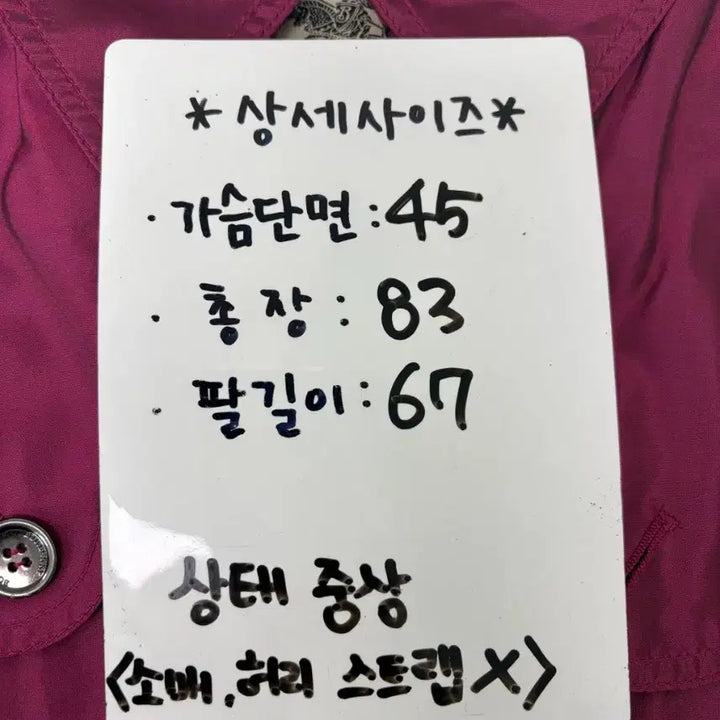 *상세사이즈*
· 가슴단면 : 45
· 총장 : 83
· 팔길이 : 67
상태 중상
<소매, 허리 스트랩 X>